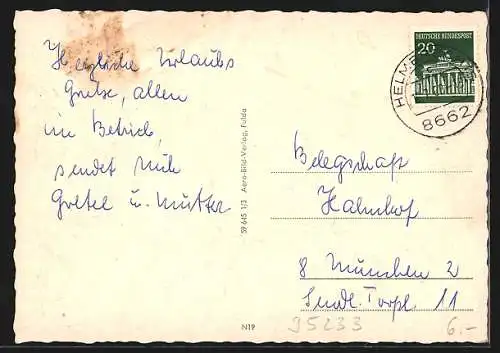 Herzliche Urlaubs
Grüße, allen
im Betrieb,
sendet Euch
Gretel u. Mutter
59 645 1/3 Aero-Bild-Verlag, Fulda
DEUTSCHE BUNDESPOST
20
HELMB
8662
Belegschaft
Hahnhof
8 München 2
Sendl. Torpl. 11
95233
6.-
N19